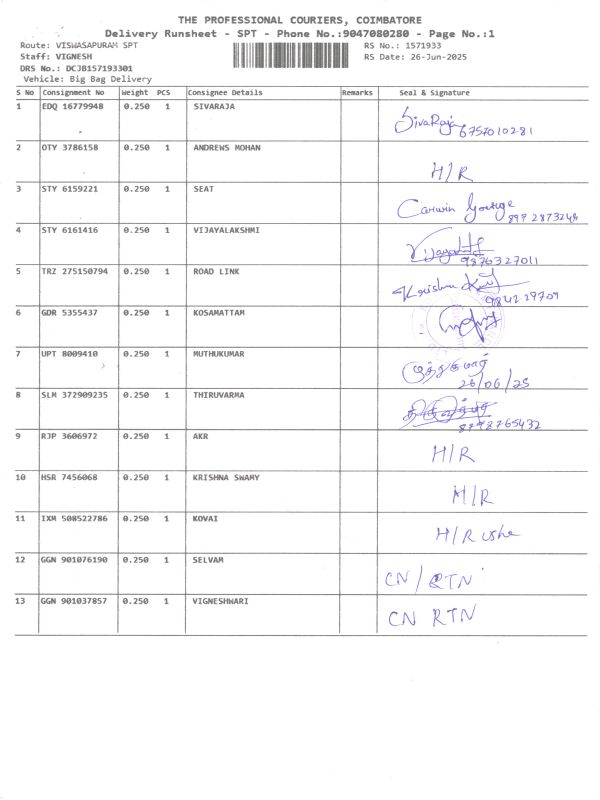 THE PROFESSIONAL COURIERS, COIMBATORE
Delivery Runsheet - SPT - Phone No.:9047080280 - Page No.:1
Route: VISWASAPURAM SPT RS No.: 1571933
Staff: VIGNESH RS Date: 26-Jun-2025
DRS No.: DCJB157193301
Vehicle: Big Bag Delivery
S No Consignment No Weight PCS Consignee Details Remarks Seal & Signature
1 EDQ 16779948 0.250 1 SIVARAJA SivaRaja 6757010281
2 OTY 3786158 0.250 1 ANDREWS MOHAN H/R
3 STY 6159221 0.250 1 SEAT
4 STY 6161416 0.250 1 VIJAYALAKSHMI 9876327011
5 TRZ 275150794 0.250 1 ROAD LINK Krishna 984229709
6 GDR 5355437 0.250 1 KOSAMATTAM
7 UPT 8009410 0.250 1 MUTHUKUMAR முத்துகுமார்
26/06/25
8 SLM 372909235 0.250 1 THIRUVARMA 8798765432
9 RJP 3606972 0.250 1 AKR H/R
10 HSR 7456068 0.250 1 KRISHNA SWAMY H/R
11 IXM 508522786 0.250 1 KOVAI H/R
12 GGN 901076190 0.250 1 SELVAM CN/RTN
13 GGN 901037857 0.250 1 VIGNESHWARI CN RTN